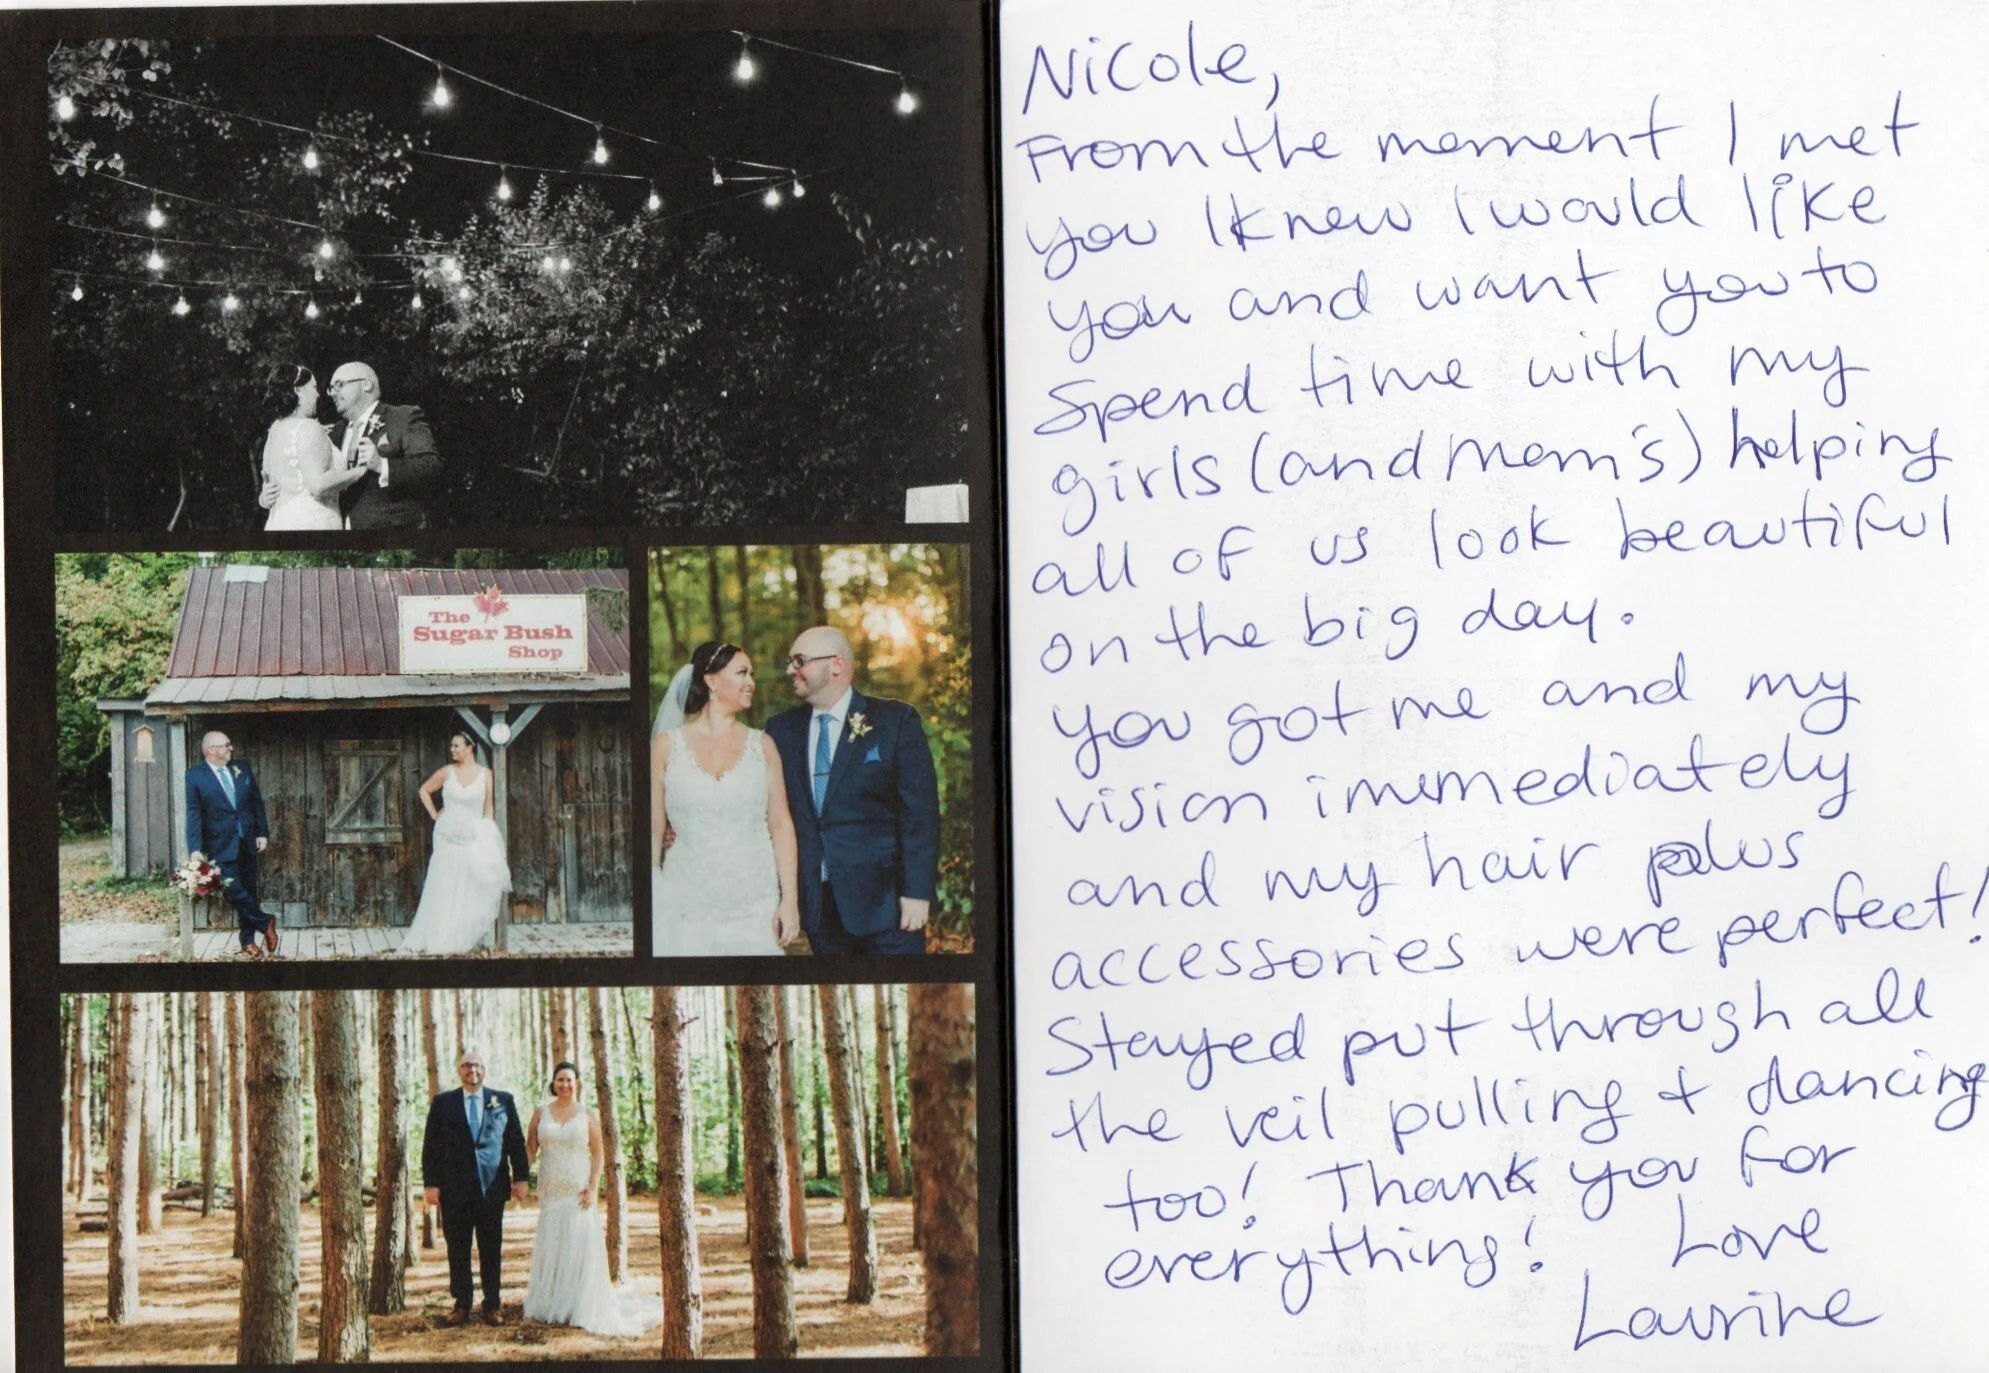 The
Sugar Bush
Shop
Nicole,
From the moment I met
you I knew I would like
you and want you to
spend time with my
girls (and Mom's) helping
all of us look beautiful
on the big day.
You got me and my
vision immediately
and my hair plus
accessories were perfect!
Stayed put through all
the veil pulling + dancing
too! Thank you for
everything! Love
Laurine